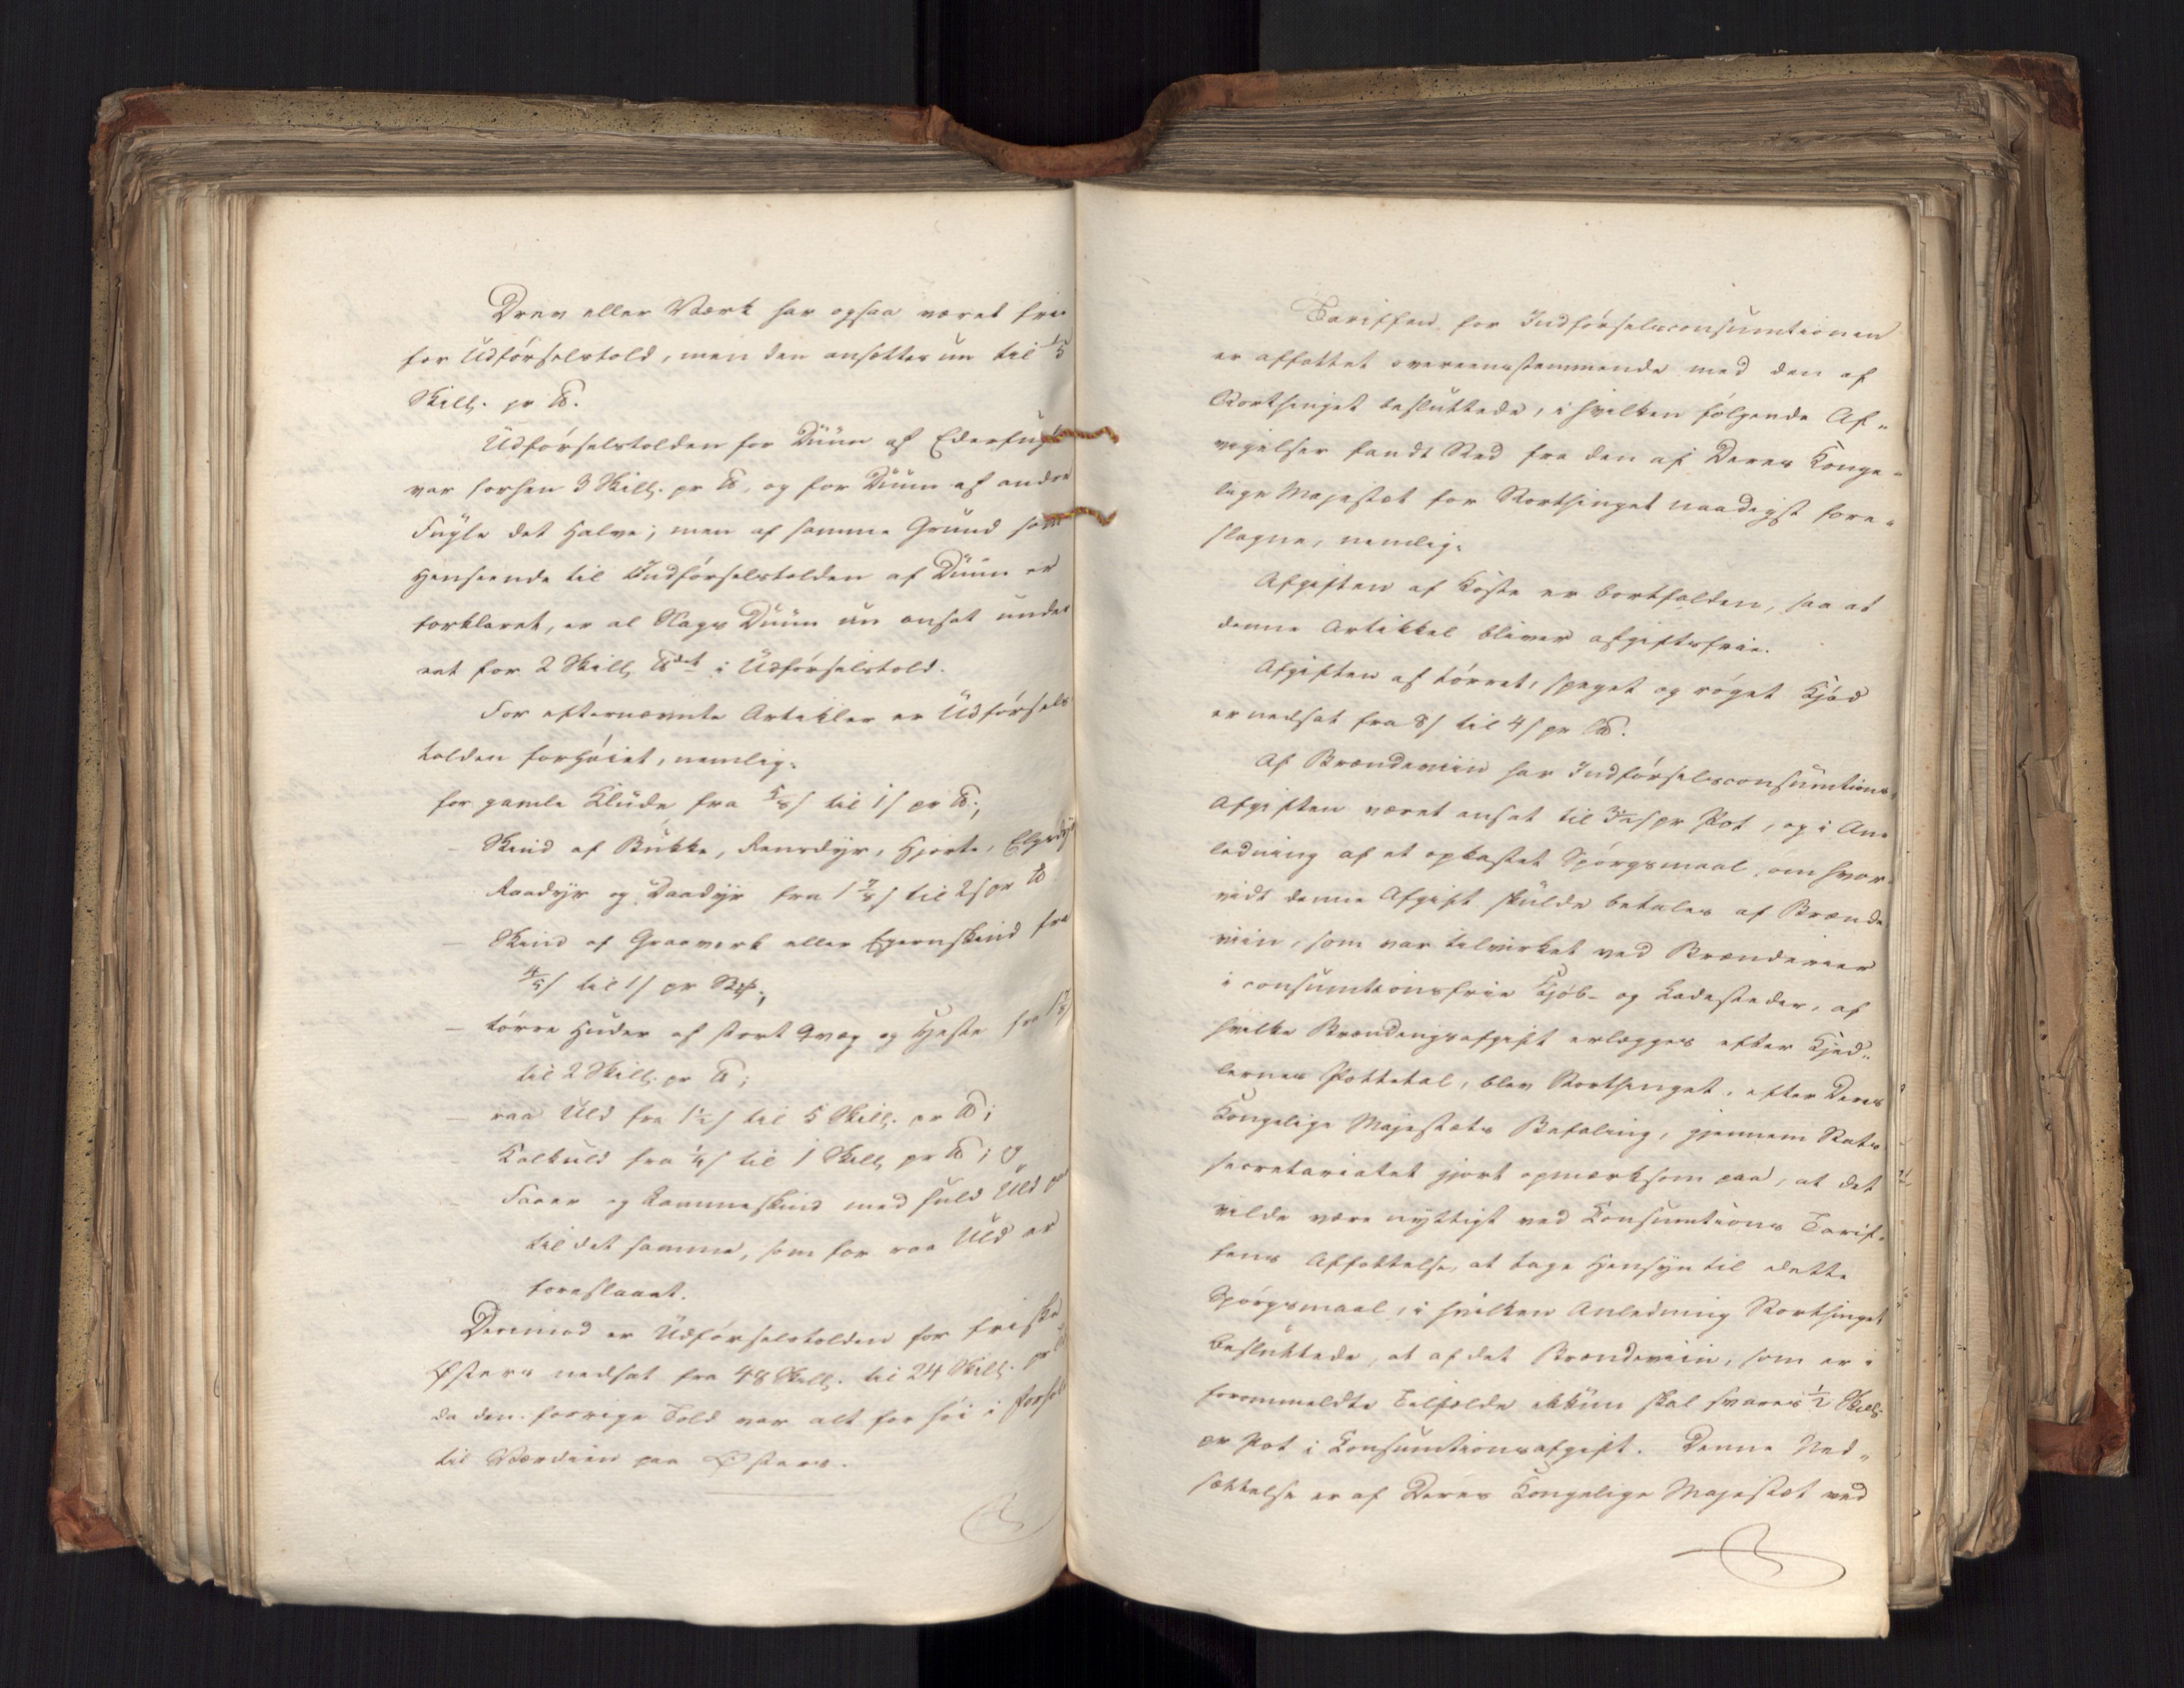 Drev eller Værk har ogsaa været frie
for Udførselstold, men den ansættes nu til 1/5
Skill. pr ℔.
Udførselstolden for Duun af Ederfugle
var forhen 3 Skill. pr ℔, og for Duun af andre
Fugle det Halve; men af samme Grund som
Henseende til Indførselstolden af Duun er
forklaret, er al Slags Duun nu ansat under
eet for 2 Skill ℔det i Udførselstold.
For efternævnte Artikler er Udførsels
tolden forhøiet, nemlig:
for gamle Klude fra 5/8 s til 1 s pr ℔;
– Skind af Bukke, Rensdyr, Hjorte, Elgsdyr
Raadyr og Daadyr fra 1 7/8 s til 2 s pr ℔
– Skind af Graaverk eller Egernskind fra
4/5 s til 1 s pr Stk;
– tørre Huder af stort Qvæg og Heste fra
til 2 Skill. pr ℔;
– raa Uld fra 1 1/2 s til 5 Skill. pr ℔;
– Kalkuld fra 1/4 s til 1 Skill pr ℔; og
– Faare og Lammeskind med fuld Uld paa
til det samme, som for raa Uld er
foreslaaet.
Derimod er Udførselstolden for friske
Østers nedsat fra 48 Skill. til 24 Skill. pr
da den forrige Told var alt for høi i Forhold
til Værdien paa Østers.
Tariffen for Indførselsconsumtionen
er affattet overeensstemmende med den af
Storthinget besluttede, i hvilken følgende Af-
vigelser fandt Sted fra den af Deres Konge-
lige Majestæt for Storthinget naadigst fore-
slagne, nemlig:
Afgiften af Koste er bortfalden, saa at
denne Artikkel bliver afgiftsfrie.
Afgiften af tørret, speget og røget Kjød
er nedsat fra 8 s til 4 s pr ℔.
Af Brændeviin har Indførselsconsumtions-
Afgiften været ansat til 3 1/2 s pr Pot, og i An-
ledning af et opkastet Spørgsmaal, om hvor-
vidt denne Afgift skulde betales af Brænde
viin, som var tilvirket ved Brænderier
i consumtionsfrie Kjøb- og Ladesteder, af
hvilke Brændingsafgift erlægges efter Kjed-
lernes Pottetal, blev Storthinget, efter Deres
Kongelige Majestæts Befaling, gjennem Stats
secretariatet gjort opmærksom paa, at det
vilde være nyttigt ved Consumtions Tarif-
fens Affattelse, at tage Hensyn til dette
Spørgsmaal, i hvilken Anledning Storthinget
besluttede, at af det Brændeviin, som er i
forommeldte Tilfælde ikkun skal svares 1/2 Skill:
pr Pot i Consumtionsafgift. Denne Ned-
sættelse er af Deres Kongelige Majestæt ved